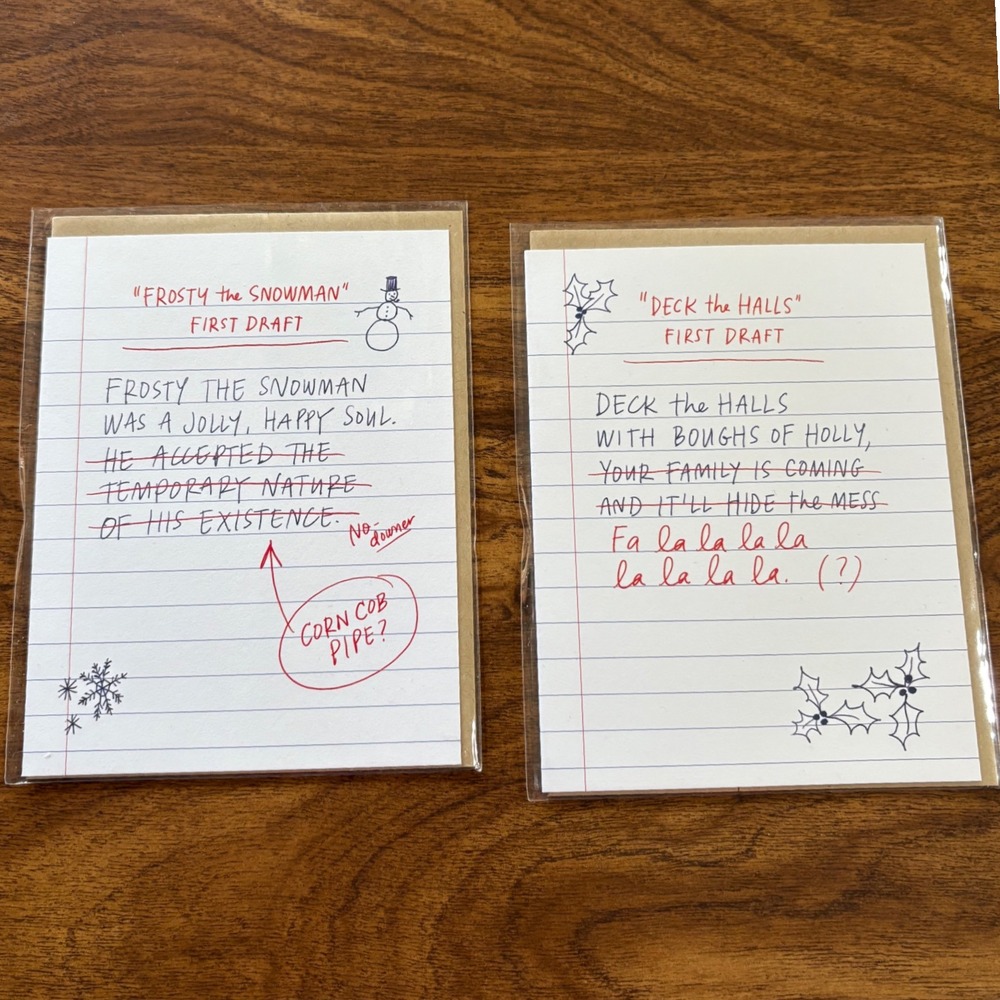 "FROSTY the SNOWMAN"
FIRST DRAFT
FROSTY THE SNOWMAN
WAS A JOLLY, HAPPY SOUL.
HE ACCEPTED THE
TEMPORARY NATURE
OF HIS EXISTENCE.
No
downer
CORN COB
PIPE?
"DECK the HALLS"
FIRST DRAFT
DECK the HALLS
WITH BOUGHS OF HOLLY,
YOUR FAMILY IS COMING
AND IT'LL HIDE the MESS
Fa la la la la
la la la la. (?)